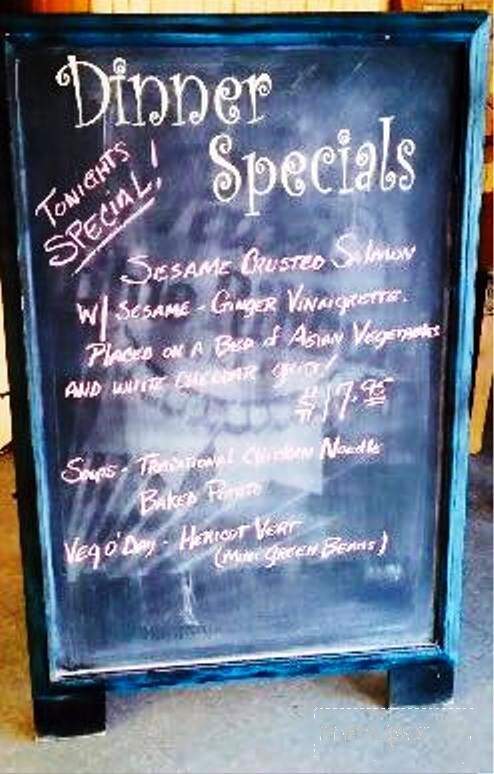 Dinner
Specials
TONIGHTS
SPECIAL!
SESAME CRUSTED SALMON
W/ SESAME - GINGER VINAIGRETTE.
PLACED ON A BED of ASIAN VEGETABLES
AND WHITE CHEDDAR GRITS!
$17.95
SOUPS - TRADITIONAL CHICKEN NOODLE
BAKED POTATO
VEG O'DAY - HERICOT VERT
(MINI GREEN BEANS)